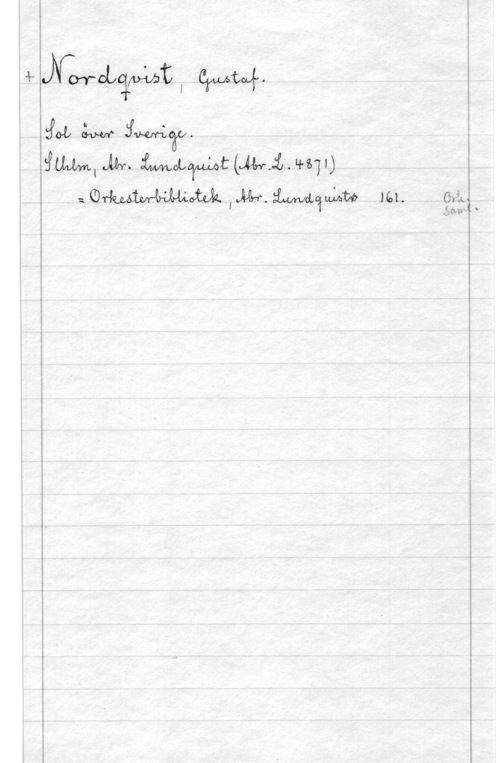 + Nordqvist, Gustaf.
+
Sol över Sverige.
Sthlm, Abr. Lundquist (Abr.L. 4871)
= Orkesterbibliotek, Abr. Lundquists 161. Ork.
Saml.